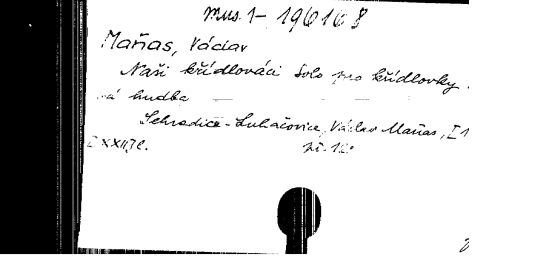 mus. 1- 196168
Maňas, Václav
Naši křídlováci Solo pro křídlovky
vá hudba
Sehradice-Luhačovice, Václav Maňas,